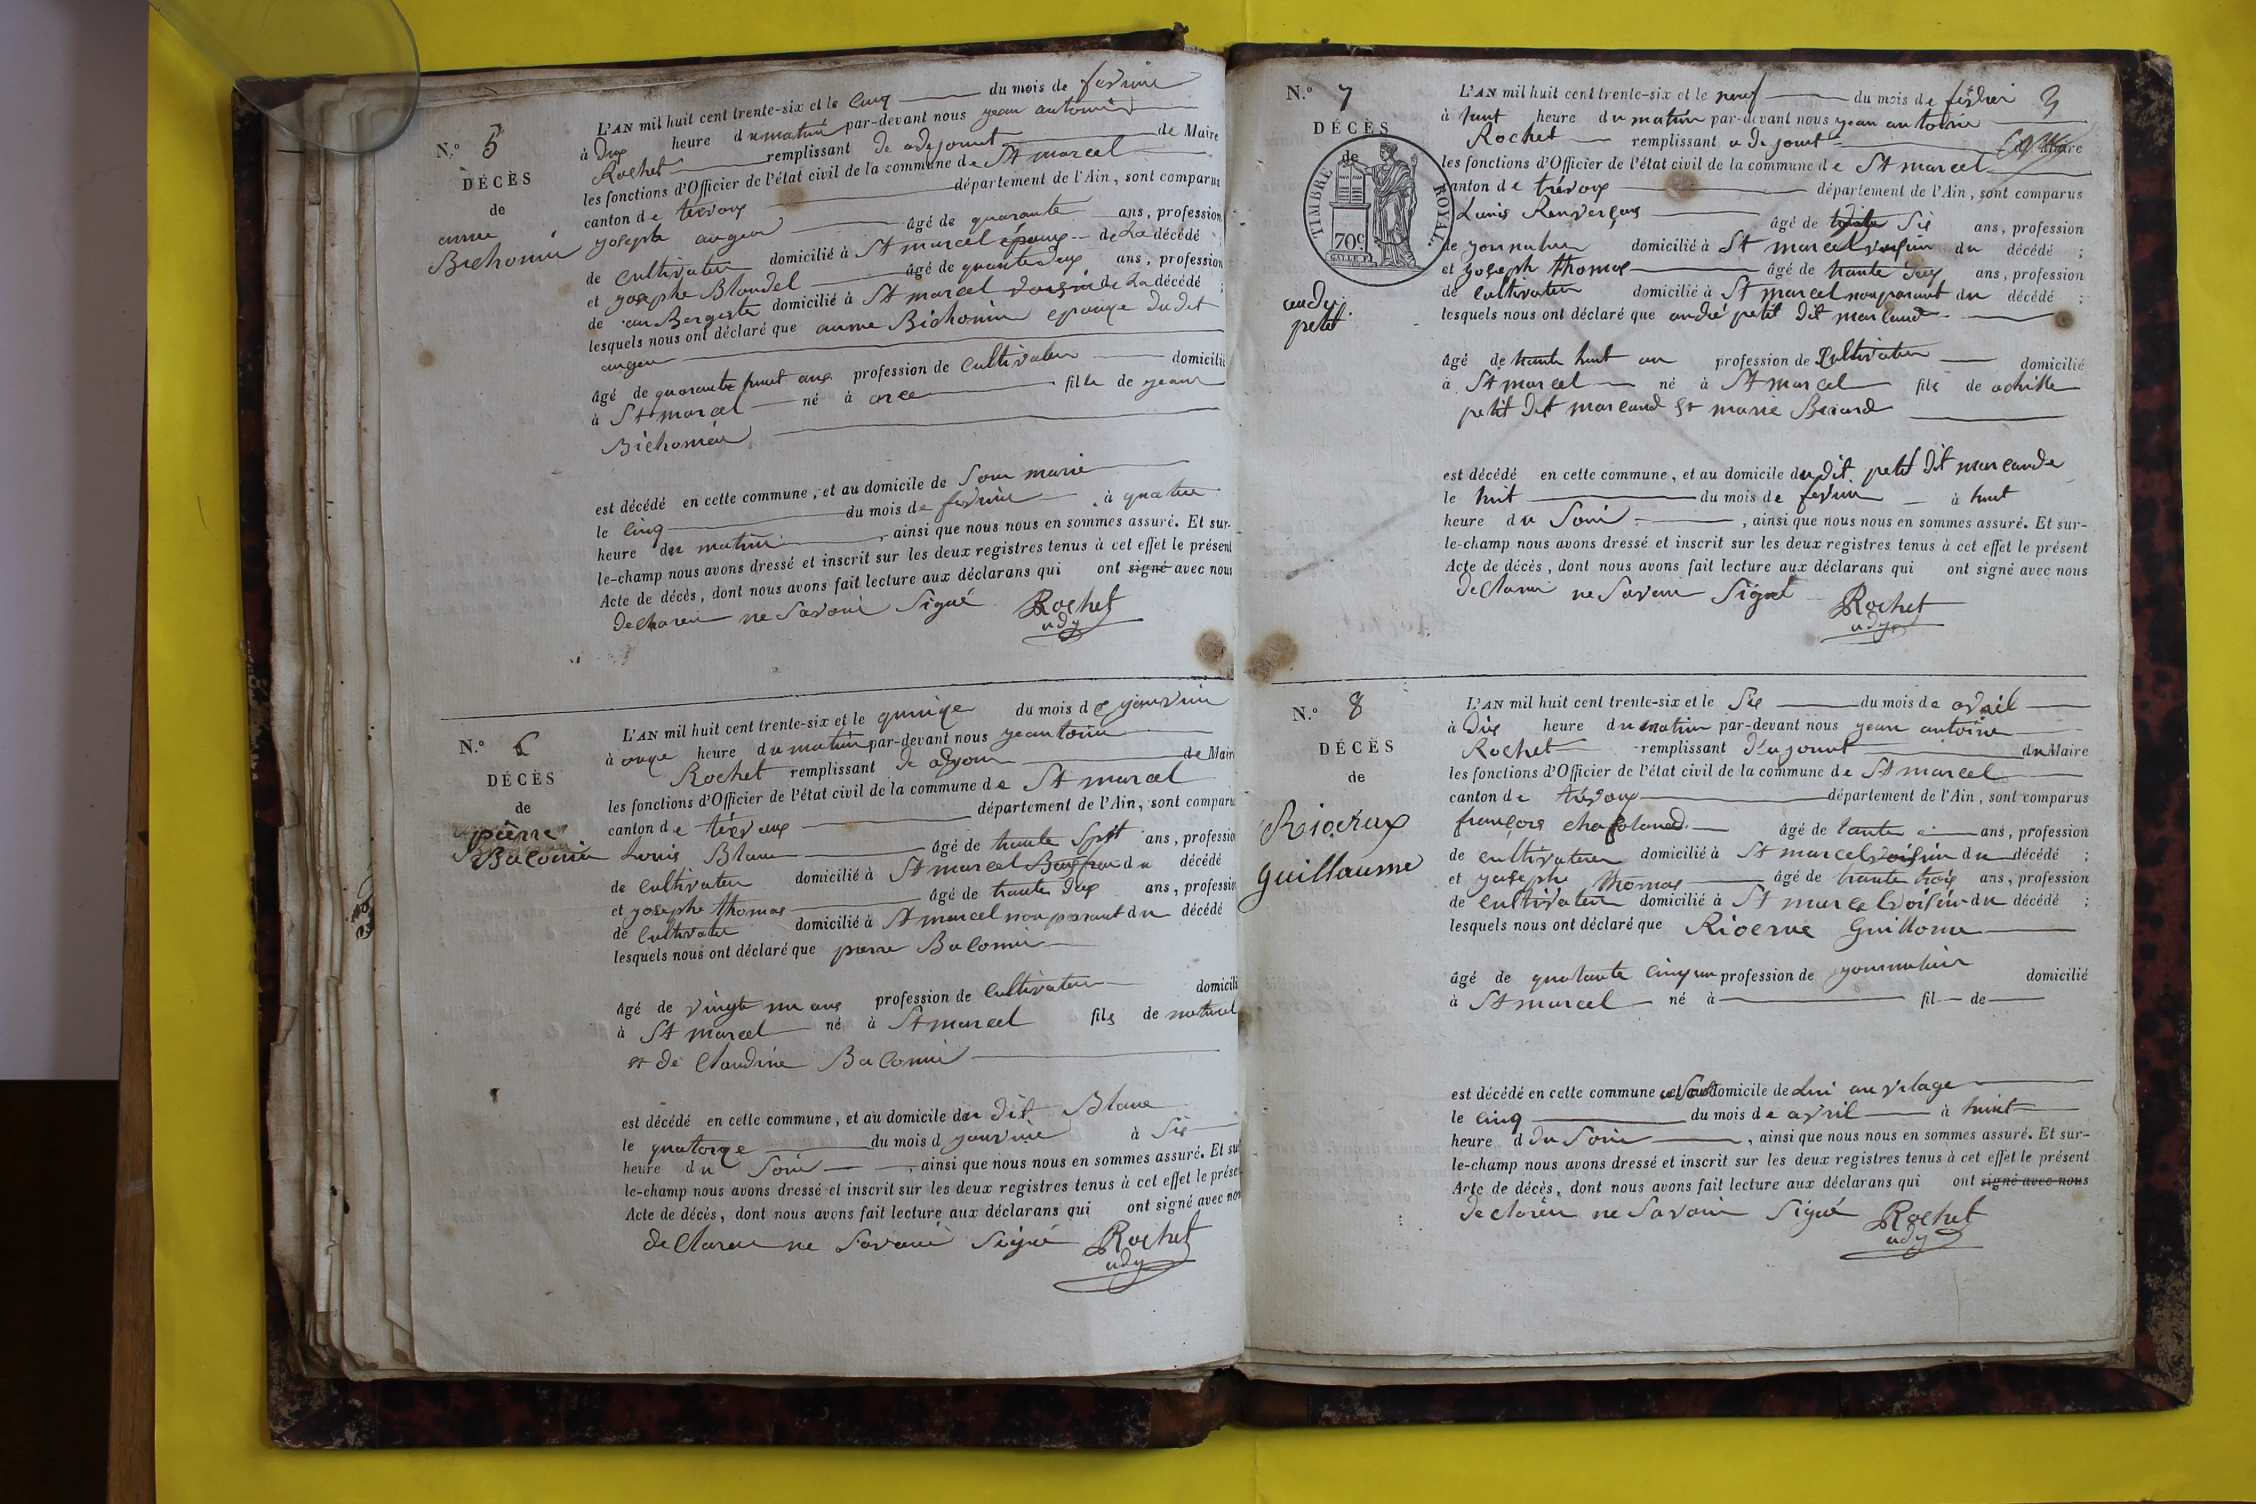 N.o 5
DÉCÈS
de
anne
Bichomin
L'AN mil huit cent trente-six et le cinq du mois de
à dix heure du matin par-devant nous jean antoine
Rochet remplissant de adejouint de Maire
les fonctions d'Officier de l'état civil de la commune de St marcel
canton de trevoux département de l'Ain, sont comparus
josephe augeu âgé de quarante ans, profession
de cultivateu domicilié à St marcel époux de La décédé ;
et josephe Blondel âgé de ans, profession
de domicilié à St marcel voisin de La décédé ;
lesquels nous ont déclaré que anme Bichomin epouze du dit
augeu
âgé de quarante huit ans profession de cultivateu domicilié
à St marcel né à arce fille de jean
Bichomin
est décédé en cette commune, et au domicile de Son marie
le cinq du mois de à quatre
heure du matin, ainsi que nous nous en sommes assuré. Et sur-
le-champ nous avons dressé et inscrit sur les deux registres tenus à cet effet le présent
Acte de décès, dont nous avons fait lecture aux déclarans qui ont signé avec nous
ne Savoir Signé Rochet
adj
N.o 6
DÉCÈS
de
pierre
Baconin
L'AN mil huit cent trente-six et le quinze du mois de janvier
à onze heure du matin par-devant nous
Rochet remplissant de de Maire
les fonctions d'Officier de l'état civil de la commune de St marcel
canton de département de l'Ain, sont comparus
Louis Blanc âgé de trante Sept ans, profession
de cultivateu domicilié à St marcel du décédé
et josephe thomas âgé de trante dux ans, profession
de cultivateu domicilié à St marcel non parant du décédé
lesquels nous ont déclaré que pierre Baconin
âgé de vingt un ans profession de cultivateu domicilié
à St marcel né à St marcel fils de naturel
et de Claudine Baconin
est décédé en cette commune, et au domicile du dit Blanc
le quatorze du mois d janvier à Six
heure du Soir, ainsi que nous nous en sommes assuré. Et sur-
le-champ nous avons dressé et inscrit sur les deux registres tenus à cet effet le présent
Acte de décès, dont nous avons fait lecture aux déclarans qui ont signé avec nous
ne Savoir Signé Rochet
adj
N.o 7
DÉCÈS
de
TIMBRE ROYAL.
70c
andré
petit
3
L'AN mil huit cent trente-six et le neuf du mois de
à huit heure du matin par-devant nous jean antoine
Rochet remplissant adejouint Maire
les fonctions d'Officier de l'état civil de la commune de St marcel
canton de trévoux département de l'Ain, sont comparus
Louis âgé de Six ans, profession
de domicilié à St marcel voisin du décédé ;
et joseph thomas âgé de trante dux ans, profession
de cultivateu domicilié à St marcel non parant du décédé ;
lesquels nous ont déclaré que andré petit dit marcand
âgé de trante huit an profession de cultivateu domicilié
à St marcel né à St marcel fils de achille
petit dit marcand et marie Berard
est décédé en cette commune, et au domicile du dit petit dit marcande
le huit du mois de à huit
heure du Soir, ainsi que nous nous en sommes assuré. Et sur-
le-champ nous avons dressé et inscrit sur les deux registres tenus à cet effet le présent
Acte de décès, dont nous avons fait lecture aux déclarans qui ont signé avec nous
ne Savoir Signé Rochet
adj
N.o 8
DÉCÈS
de
Rioerux
guillaume
L'AN mil huit cent trente-six et le Six du mois de avril
à Dix heure du matin par-devant nous jean antoine
Rochet remplissant du Maire
les fonctions d'Officier de l'état civil de la commune de St marcel
canton de trévoux département de l'Ain, sont comparus
françois âgé de ans, profession
de cultivateur domicilié à St marcel voisin du décédé ;
et josephe thomas âgé de trante trois ans, profession
de cultivateu domicilié à St marcel voisin du décédé ;
lesquels nous ont déclaré que Guillome
âgé de cinq an profession de domicilié
à St marcel né à fil de
est décédé en cette commune domicile de Lui au vilage
le cinq du mois de avril à huit
heure d du Soir, ainsi que nous nous en sommes assuré. Et sur-
le-champ nous avons dressé et inscrit sur les deux registres tenus à cet effet le présent
Acte de décès, dont nous avons fait lecture aux déclarans qui ont signé avec nous
ne Savoir Signé Rochet
adj